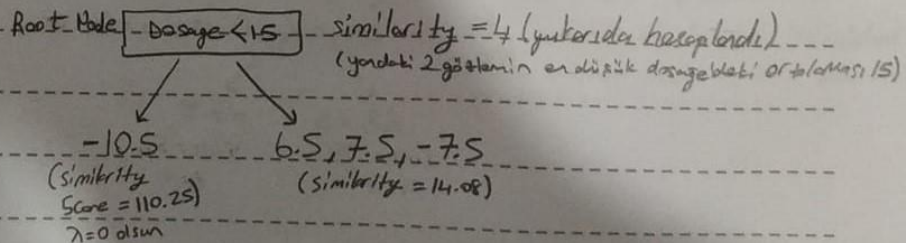 Root Node Dosage < 15 similarity = 4 (yukarıda hesaplandı)
(yandaki 2 gözlemin en düşük dosagedeki ortalaması 15)
-10.5 6.5, 7.5, -7.5
(similarity (similarity = 14.08)
Score = 110.25)
λ=0 olsun